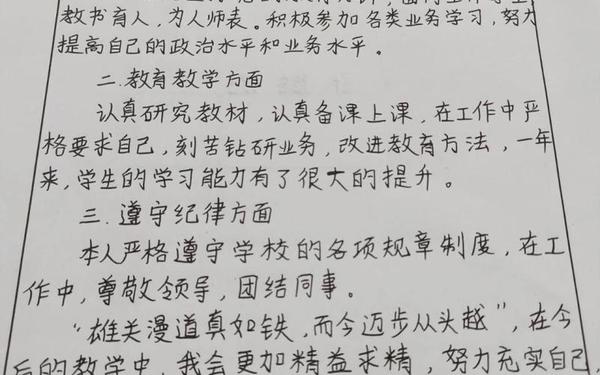 教书育人，为人师表。积极参加各类业务学习，努力
提高自己的政治水平和业务水平。
二.教育教学方面
认真研究教材，认真备课上课，在工作中严
格要求自己，刻苦钻研业务，改进教育方法，一年
来，学生的学习能力有了很大的提升。
三.遵守纪律方面
本人严格遵守学校的各项规章制度，在工
作中，尊敬领导，团结同事。
“雄关漫道真如铁，而今迈步从头越”，在今
后的教学中，我会更加精益求精，努力充实自己，